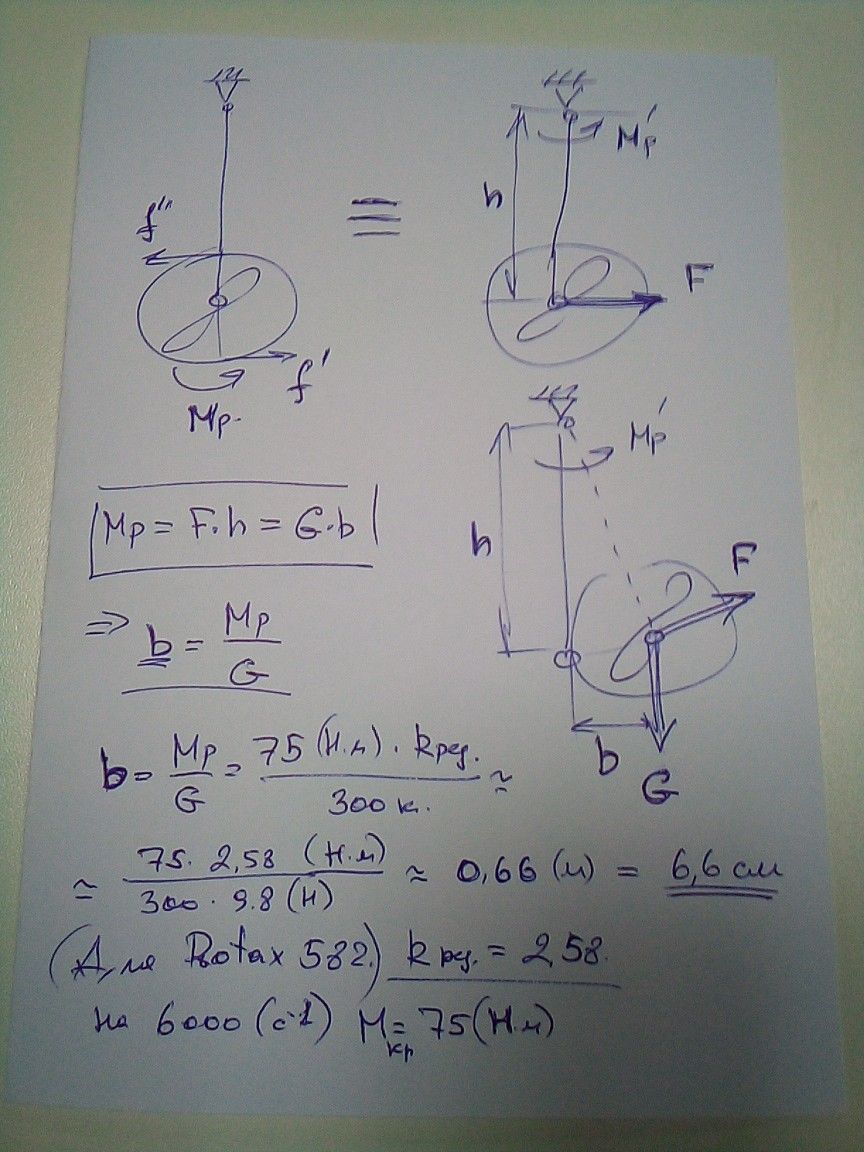 f'' ≡ h Mр' F
f'
Mр.
Mр' h F
b G
Mр = F·h = G·b
⇒ b = Mр/G
b = Mр/G = 75 (Н.м) · kред. / 300 к. ≃
≃ 75 · 2,58 (Н.м) / 300 · 9.8 (Н) ≈ 0,66 (м) = 6,6 см
(Для Rotax 582.) kред. = 2,58.
на 6000 (с-1) Mкр = 75 (Н.м)